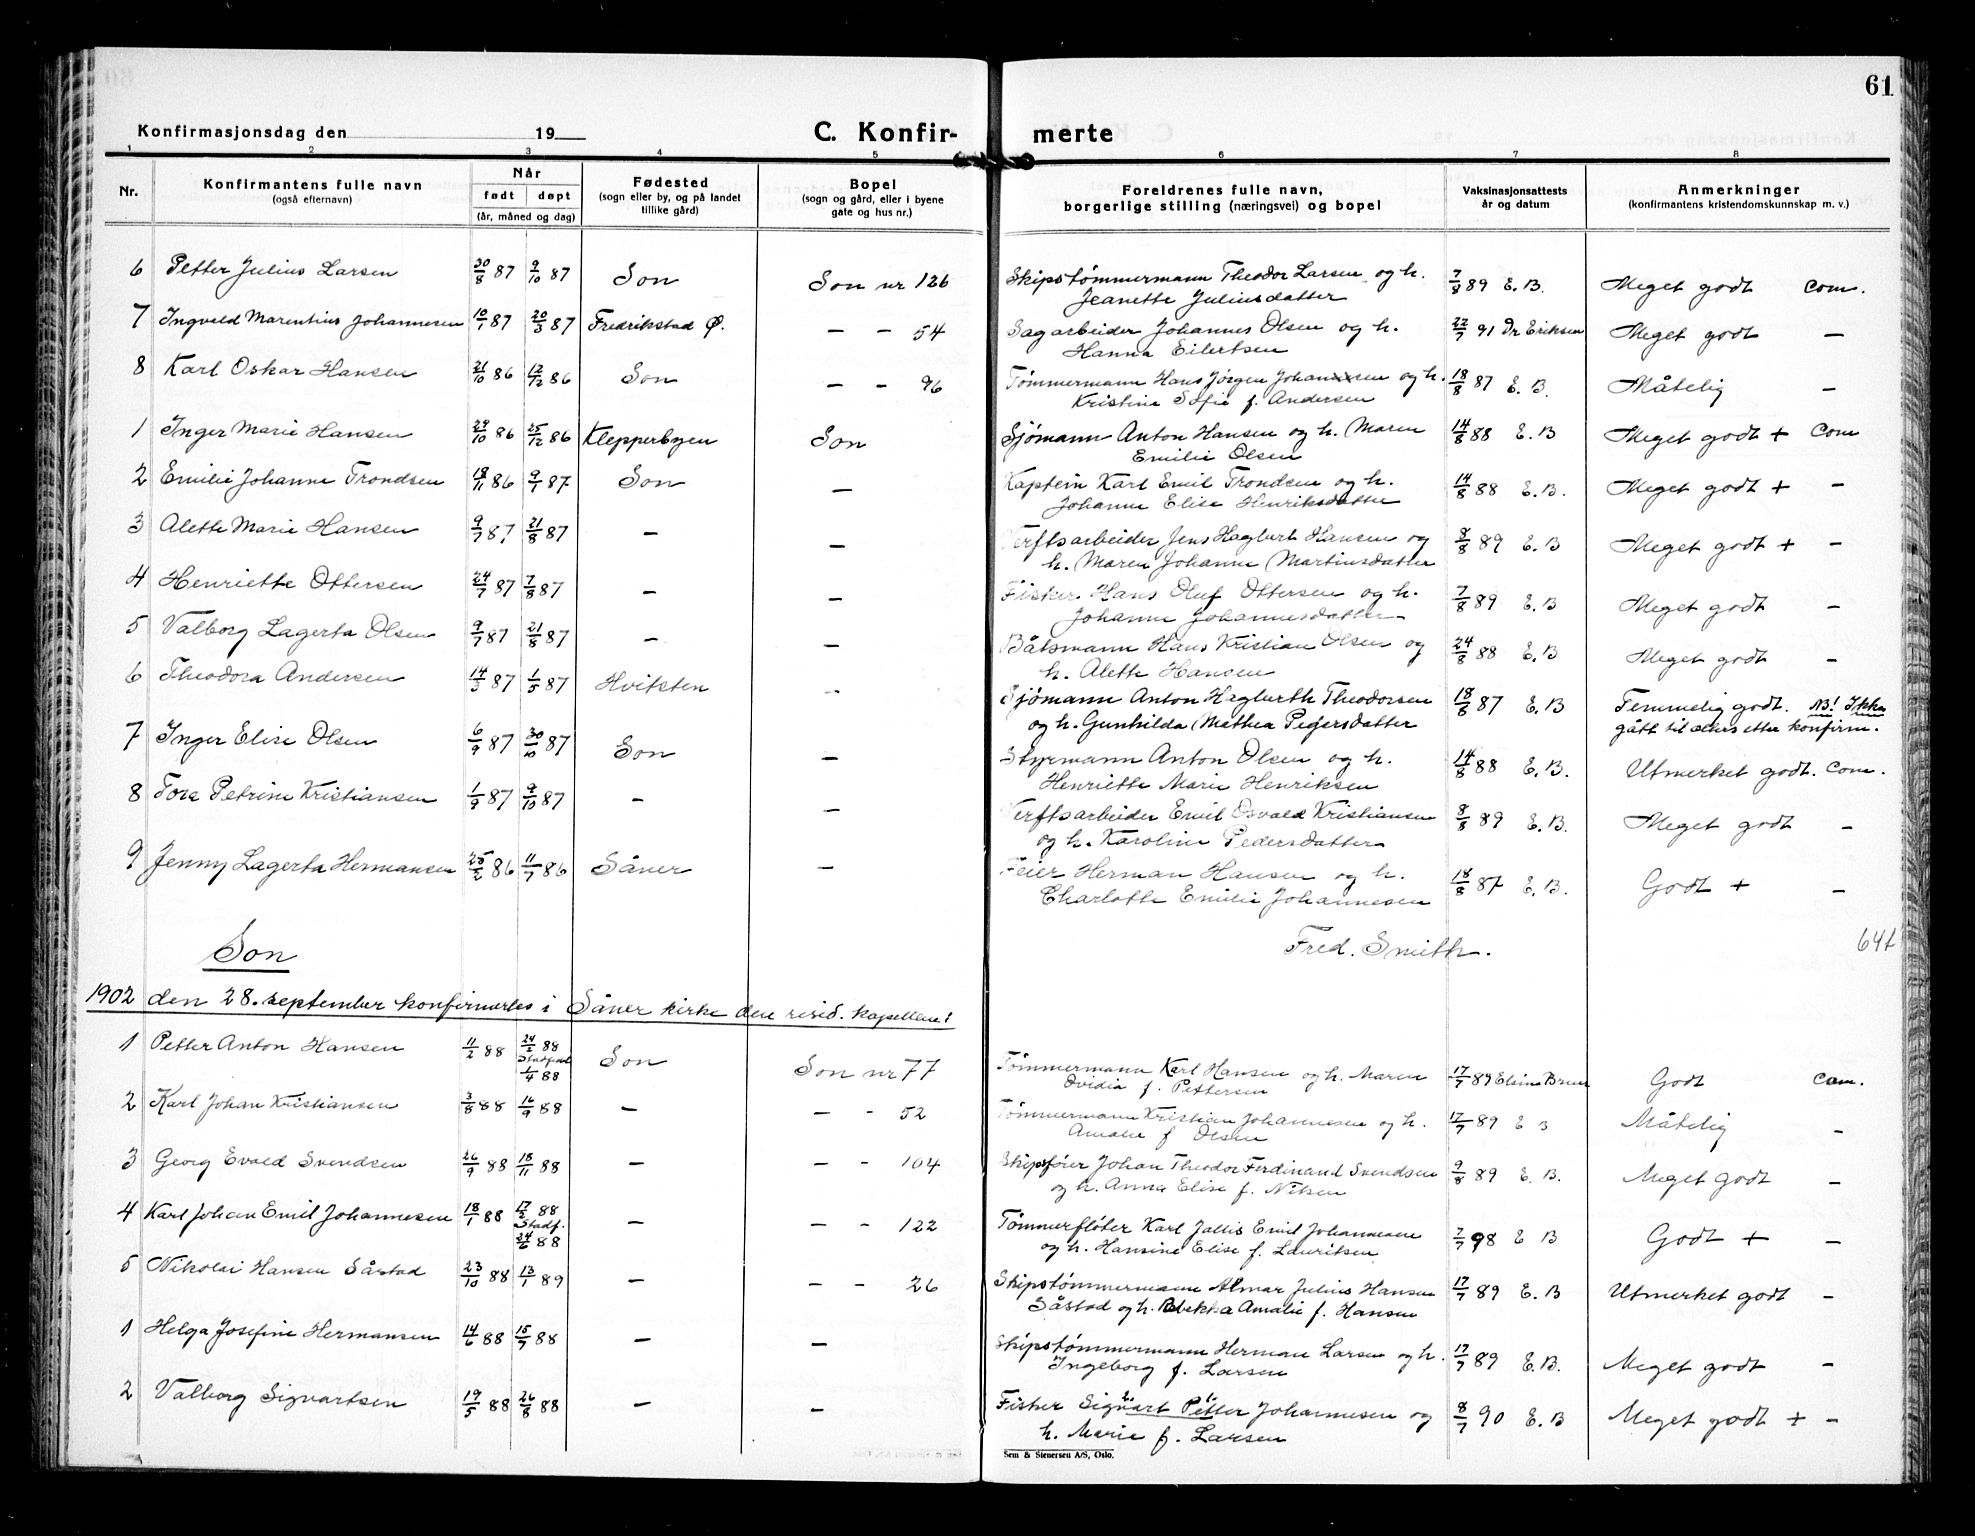 61
Konfirmasjonsdag den 19 C. Konfir- merte
1 2 3 4 5 6 7 8
Nr. Konfirmantens fulle navn (også efternavn) Når født døpt (år, måned og dag) Fødested (sogn eller by, og på landet tillike gård) Bopel (sogn og gård, eller i byene gate og hus nr.) Foreldrenes fulle navn, borgerlige stilling (næringsvei) og bopel Vaksinasjonsattests år og datum Anmerkninger (konfirmantens kristendomskunnskap m. v.)
6 Petter Julius Larsen 30/8 87 9/10 87 Son Son nr 126 Skipstømmermann Theodor Larsen og h. 7/8 89 E. B. Meget godt Com.
Jeanette Juliusdatter
7 Ingvald Marentius Johannesen 10/1 87 20/3 87 Fredrikstad Ø. — - 54 Sagarbeider Johannes Olsen og h. 22/7 91 Dr Eriksen Meget godt —
Hanna Eilertsen
8 Karl Oskar Hansen 21/10 86 12/12 86 Son — - 96 Tømmermann Hans Jørgen Johansen og h. 18/8 87 E. B. Måtelig —
Kristine Sofie f. Andersen
1 Inger Marie Hansen 29/10 86 25/12 86 Klepperbyen Son Sjømann Anton Hansen og h. Maren 14/8 88 E. B Meget godt + Com
Emilie Olsen
2 Emilie Johanne Trondsen 18/11 86 9/1 87 Son — Kaptein Karl Emil Trondsen og h. 14/8 88 E. B. Meget godt + -
Johanne Elise Henriksdatter
3 Aleth Marie Hansen 9/7 87 21/8 87 — — Verftsarbeider Jens Hagbert Hansen og 8/8 89 E. B Meget godt + -
h. Maren Johanne Martinsdatter
4 Henriette Ottersen 24/7 87 7/8 87 — — Fisker Hans Oluf Ottersen og h. 7/8 89 E. B Meget godt —
Johanne Johannesdatter
5 Valborg Lagerta Olsen 9/7 87 21/8 87 — — Båtsmann Hans Kristian Olsen og 24/8 88 E. B Meget godt —
h. Aleth Hansen
6 Theodora Andersen 14/3 87 1/5 87 Hvitsten - Sjømann Anton Hagberth Theodorsen 18/8 87 E. B Temmelig godt. NB! Ikke
og h. Gunhilda Mathea Pedersdatter gått til alters etter konfirm.
7 Inger Elise Olsen 6/9 87 30/10 87 Son — Styrmann Anton Olsen og h. 14/8 88 E. B. Utmerket godt. Com.
Henriette Marie Henriksen
8 Tora Petrine Kristiansen 1/9 87 9/10 87 - — Verftsarbeider Emil Osvald Kristiansen 8/8 89 E. B. Meget godt —
og h. Karoline Pedersdatter
9 Jenny Lagerta Hermansen 25/2 86 11/7 86 Såner — Feier Herman Hansen og h. 18/8 87 E. B. Godt + —
Charlotte Emilie Johannesen
Son Fred. Smith.
1902 den 28. september konfirmertes i Såner kirke den resid. kapellan:
1 Petter Anton Hansen 11/2 88 24/2 88 Son Son nr 77 Tømmermann Karl Hansen og h. Maren 17/7 89 Elsine Bruun Godt Com.
1/4 88 Ovidia f. Pettersen
2 Karl Johan Kristiansen 3/8 88 16/9 88 — — - 52 Tømmermann Kristian Johannesen og h. 17/7 89 E B Måtelig —
Amalie f Olsen
3 Georg Evald Svendsen 26/9 88 18/11 88 — — - 104 Skipsfører Johan Theodor Ferdinand Svendsen 9/8 89 E. B. Meget godt —
og h. Anna Elise f. Nilsen
4 Karl Johan Emil Johannesen 18/1 88 17/2 88 — — - 122 Tømmerfløter Karl Emil Johannesen 7/7 98 E B Godt + —
Stadf. 24/6 88 og h. Hansine Elise f. Lauritsen
5 Nikolai Hansen Såstad 23/10 88 13/1 89 — — - 26 Skipstømmermann Almar Julius Hansen 17/7 89 E. B Utmerket godt —
Såstad og h. Rebekka Amalie f. Hansen
1 Helga Josefine Hermansen 14/6 88 15/7 88 — — Skipstømmermann Herman Larsen og h. 17/7 89 E. B. Meget godt —
Ingeborg f. Larsen
2 Valborg Sigvartsen 19/5 88 26/8 88 — — Fisker Sigvart Petter Johannesen og 8/7 90 E. B Meget godt + —
h. Marie f. Larsen
Sem & Stenersen A/S, Oslo.